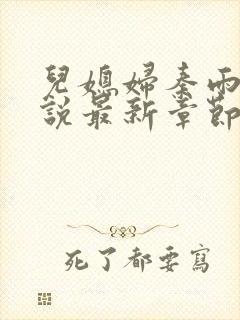 兒媳婦秦雨
說最新章節
死了都要寫